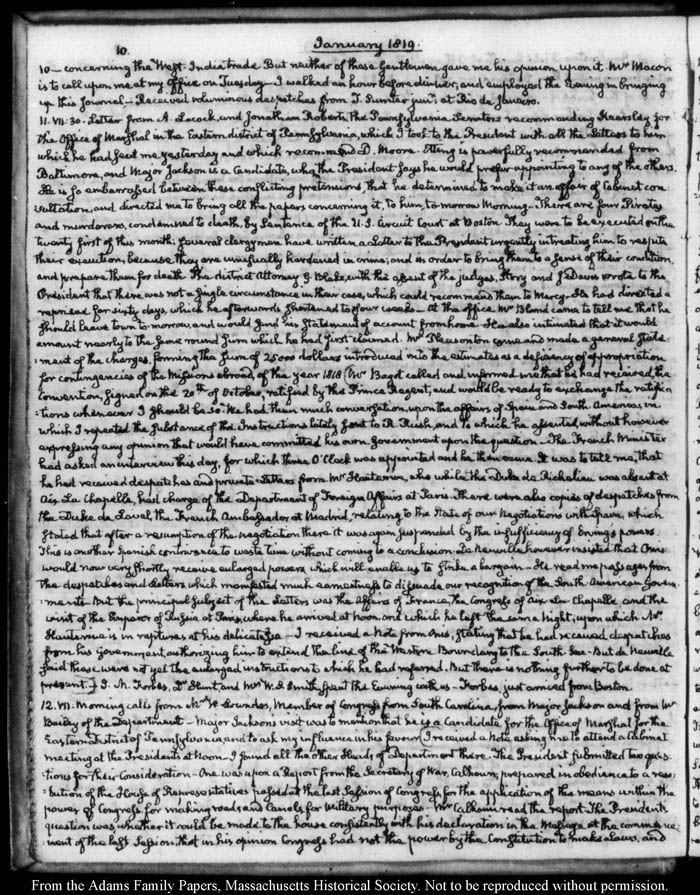 10.
January 1819.
10— concerning the West-India trade. But neither of these Gentlemen gave me his opinion upon it. Mr Macon
is to call upon me at my Office on Tuesday— I walked an hour before dinner, and employed the Evening in bringing
up this Journal— Received voluminous despatches from T. Sumter junr. at Rio de Janeiro.
11. VII:30. Letter from A. Lacock, and Jonathan Roberts, the Pennsylvania Senators recommending Kearsley for
the Office of Marshal in the Eastern district of Pennsylvania, which I took to the President with all the Letters to him
which he had sent me yesterday and which recommend D. Moore. Etting is powerfully recommended from
Baltimore, and Major Jackson is a Candidate, who the President says he would prefer appointing to any of the others.
He is so embarrassed between these conflicting pretensions, that he determined to make it an affair of Cabinet con
sultation, and directed me to bring all the papers concerning it, to him, to-morrow Morning— There are four Pirates
and murderers, condemned to death, by Sentence of the U.S. Circuit Court at Boston. They were to be executed on the
twenty first of this month. Several clergymen have written a Letter to the President urgently intreating him to respite
their execution, because they are unusually hardened in crime; and in order to bring them to a sense of their condition,
and prepare them for death. The district Attorney G. Blake, with the assent of the judges, Story and J Davis wrote to the
President that there was not a single circumstance in their case, which could recommend them to Mercy. He had directed a
reprieve for sixty days, which he afterwards shortened to four weeks— At the office. Mr Bland came to tell me that he
should leave town to-morrow, and would send his Statement of account from home. He also intimated that it would
amount nearly to the same round sum which he had first claimed. Mr Pleasonton came and made a general State
:ment of the charges, forming the sum of 25000 dollars introduced into the estimates as a deficiency of appropriation
for contingencies of the Missions abroad, of the year 1818. Mr Bagot called and informed me that he had received the
Convention, signed on the 20th of October, ratified by the Prince Regent, and would be ready to exchange the ratifica
:tions whenever I should be so. We had then much conversation, upon the affairs of Spain and South America, in
which I repeated the substance of the Instructions lately sent to R. Rush, and to which he assented, without however
expressing any opinion that would have committed his own Government upon the question— The French Minister
had asked an interview this day, for which three O'Clock was appointed and he then came. It was to tell me, that
he had received despatches and private Letters from Mr Hauterive, who while the Duke de Richelieu was absent at
Aix La Chapelle, had charge of the Department of Foreign Affairs at Paris. There were also copies of despatches from
the Duke de Laval, the French Ambassador at Madrid, relating to the State of our Negotiations with Spain, which
stated that after a resumption of the negotiation there it was again suspended by the insufficiency of Erving's powers.
This is another Spanish contrivance to waste time without coming to a conclusion. De Neuville however insisted that Onis
would now very shortly receive enlarged powers, which will enable us to strike a bargain— He read me passages from
the despatches and Letters which manifested much earnestness to dissuade our recognition of the South American Govern
:ments. But the principal subject of the Letters was the Affairs of France, the Congress of Aix La Chapelle, and the
visit of the Emperor of Russia at Paris, where he arrived at noon, and which he left the same Night; upon which Mr
Hauterive is in raptures at his delicatesse— I received a Note from Onis, stating that he had received despatches
from his Government, authorizing him to extend the line of the Western Boundary to the South Sea— But de Neuville
said these were not yet the enlarged instructions to which he had referred. But there is nothing further to be done at
present.] J. M. Forbes, Dr Hunt and Mr W. S. Smith, spent the Evening with us— Forbes, just arrived from Boston.
12. VII. Morning calls from Mr W Lowndes, Member of Congress from South Carolina, from Major Jackson and from Mr
Bailey of the Department— Major Jackson's visit was to mention that he is a Candidate for the Office of Marshal for the
Eastern District of Pennsylvania, and to ask my influence in his favour. I received a Note asking me to attend a Cabinet
meeting at the Presidents at Noon. I found all the other Heads of Department there. The President submitted two ques
:tions for their Consideration— One was upon a Report from the Secretary of War, Calhoun, prepared in obedience to a reso
:lution of the House of Representatives passed at the last Session of Congress for the application of the means within the
power of Congress for making roads and Canals for Military purposes. Mr Calhoun read the report. The President's
question was, whether it could be made to the house consistently with his declaration in the Message at the commence
:ment of the last Session, that in his opinion Congress had not the power by the Constitution to make a Law, and
From the Adams Family Papers, Massachusetts Historical Society. Not to be reproduced without permission.